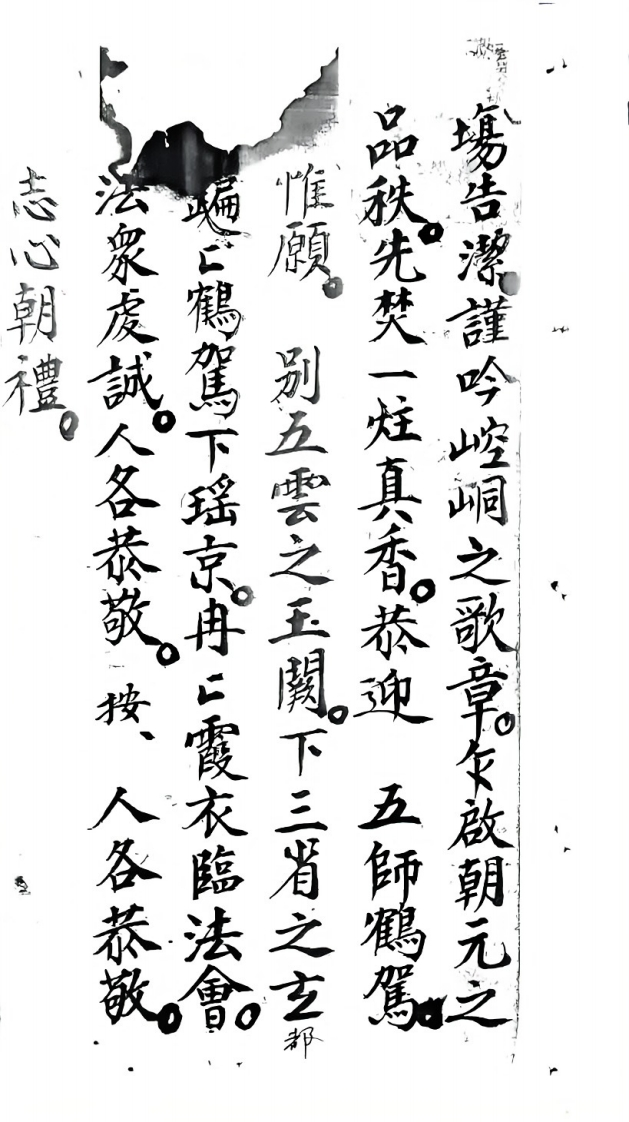 塲告潔。謹吟崆峒之歌章。仌啟朝元之
品秩。先焚一炷真香。恭迎　五師鶴駕。
惟願。　别五雲之玉闕。下三省之玄都
翩〻鶴駕下瑶京。冉〻霞衣臨法會。
法衆虔誠。人各恭敬。按、人各恭敬。
志心朝禮。